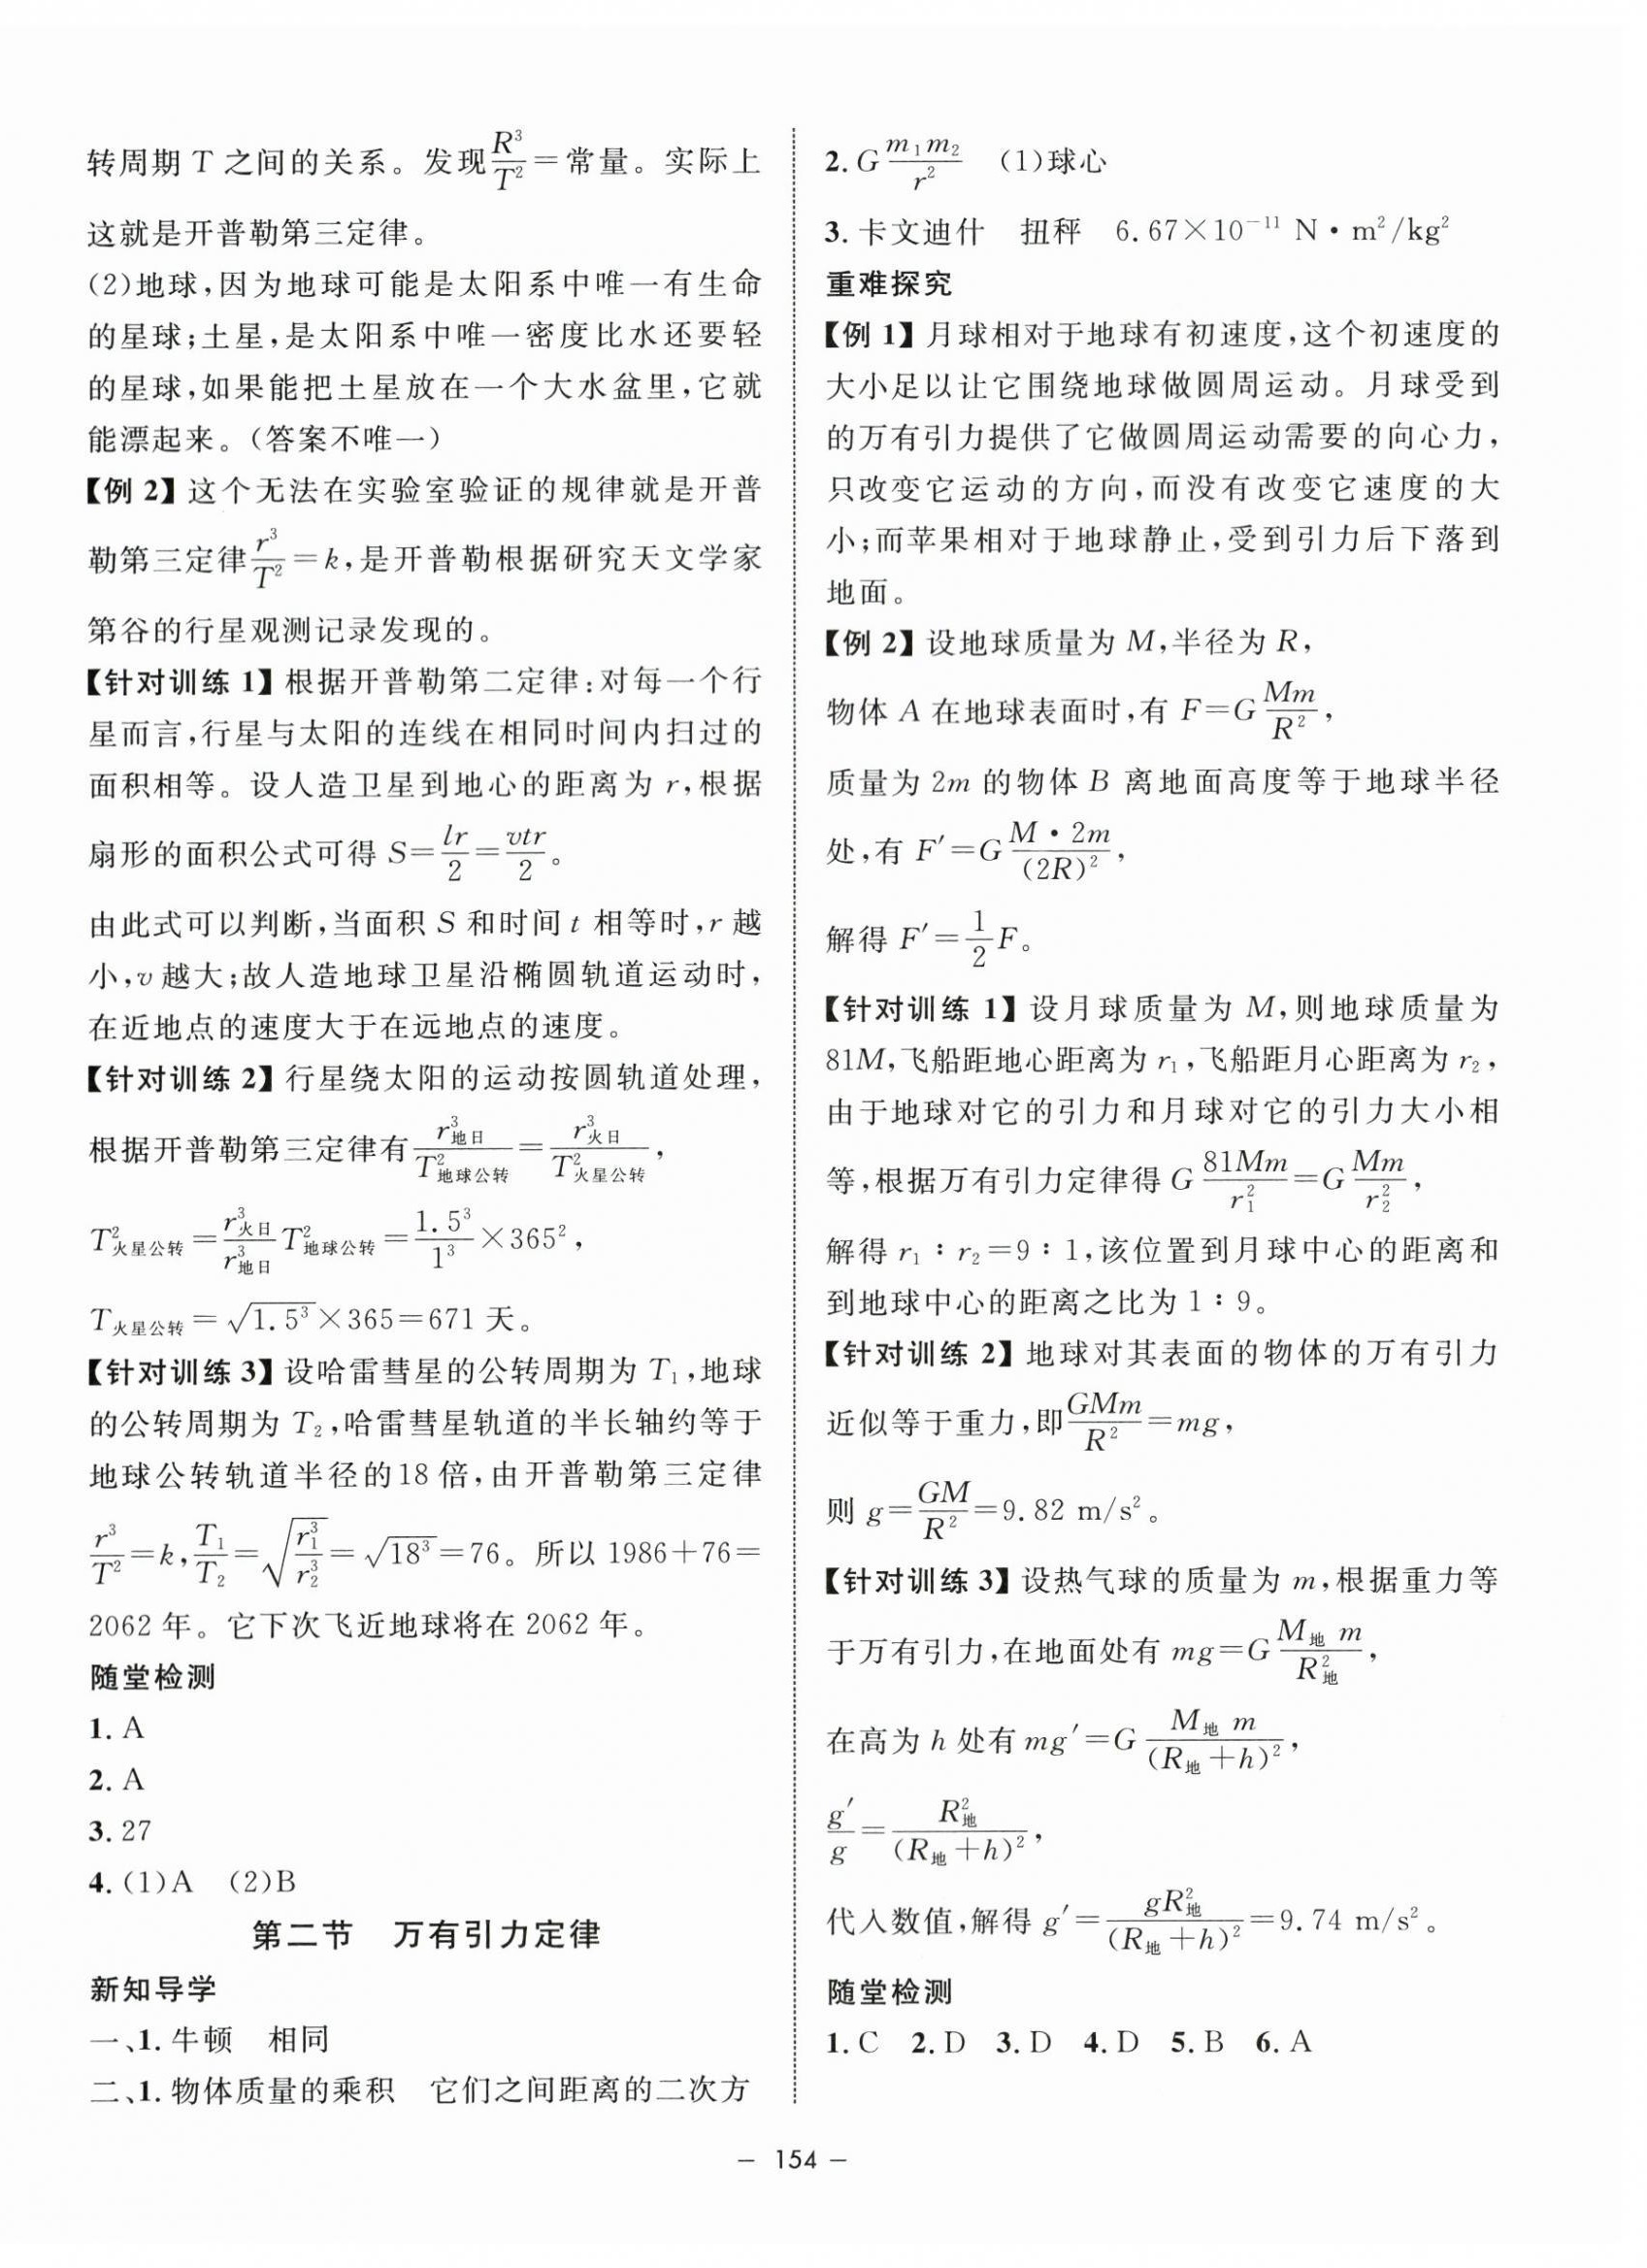 转周期 T 之间的关系。发现R³/T²=常量。实际上
这就是开普勒第三定律。
(2)地球,因为地球可能是太阳系中唯一有生命
的星球;土星,是太阳系中唯一密度比水还要轻
的星球,如果能把土星放在一个大水盆里,它就
能漂起来。(答案不唯一)
【例 2】这个无法在实验室验证的规律就是开普
勒第三定律r³/T²=k,是开普勒根据研究天文学家
第谷的行星观测记录发现的。
【针对训练 1】根据开普勒第二定律:对每一个行
星而言,行星与太阳的连线在相同时间内扫过的
面积相等。设人造卫星到地心的距离为 r,根据
扇形的面积公式可得 S=lr/2=vtr/2。
由此式可以判断,当面积 S 和时间 t 相等时,r 越
小,v 越大;故人造地球卫星沿椭圆轨道运动时,
在近地点的速度大于在远地点的速度。
【针对训练 2】行星绕太阳的运动按圆轨道处理,
根据开普勒第三定律有r³地日/T²地球公转=r³火日/T²火星公转,
T²火星公转=r³火日/r³地日 T²地球公转=1.5³/1³×365²,
T火星公转=√1.5³×365=671 天。
【针对训练 3】设哈雷彗星的公转周期为 T₁,地球
的公转周期为 T₂,哈雷彗星轨道的半长轴约等于
地球公转轨道半径的18 倍,由开普勒第三定律
r³/T²=k,T₁/T₂=√(r₁³/r₂³)=√18³=76。所以 1986+76=
2062 年。它下次飞近地球将在 2062 年。
随堂检测
1. A
2. A
3. 27
4. (1)A (2)B
第二节 万有引力定律
新知导学
一、1. 牛顿 相同
二、1. 物体质量的乘积 它们之间距离的二次方
2. G m₁m₂/r² (1)球心
3. 卡文迪什 扭秤 6.67×10⁻¹¹ N·m²/kg²
重难探究
【例 1】月球相对于地球有初速度,这个初速度的
大小足以让它围绕地球做圆周运动。月球受到
的万有引力提供了它做圆周运动需要的向心力,
只改变它运动的方向,而没有改变它速度的大
小;而苹果相对于地球静止,受到引力后下落到
地面。
【例 2】设地球质量为 M,半径为 R,
物体 A 在地球表面时,有 F=G Mm/R²,
质量为 2m 的物体 B 离地面高度等于地球半径
处,有 F′=G M·2m/(2R)²,
解得 F′=1/2 F。
【针对训练 1】设月球质量为 M,则地球质量为
81M,飞船距地心距离为 r₁,飞船距月心距离为 r₂,
由于地球对它的引力和月球对它的引力大小相
等,根据万有引力定律得 G 81Mm/r₁²=G Mm/r₂²,
解得 r₁∶r₂=9∶1,该位置到月球中心的距离和
到地球中心的距离之比为 1∶9。
【针对训练 2】地球对其表面的物体的万有引力
近似等于重力,即GMm/R²=mg,
则 g=GM/R²=9.82 m/s²。
【针对训练 3】设热气球的质量为 m,根据重力等
于万有引力,在地面处有 mg=G M地 m/R²地,
在高为 h 处有 mg′=G M地 m/(R地+h)²,
g′/g=R²地/(R地+h)²,
代入数值,解得 g′=gR²地/(R地+h)²=9.74 m/s²。
随堂检测
1. C 2. D 3. D 4. D 5. B 6. A
– 154 –